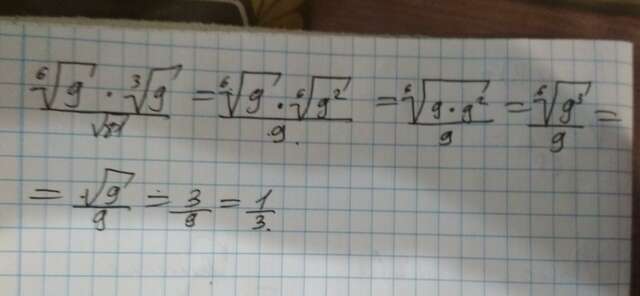 ⁶√9 · ³√9 / √ = ⁶√9 · ⁶√9² / 9 = ⁶√9·9² / 9 = ⁶√9³ / 9 =
= √9 / 9 = 3 / 9 = 1 / 3.